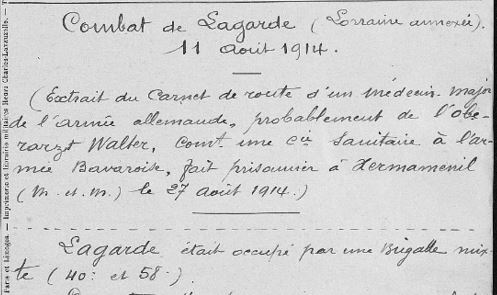 Combat de Lagarde (Lorraine annexée).
11 août 1914.
(Extrait du Carnet de route d'un médecin-major
de l'armée allemande, probablement de l'obe-
rarzt Walter, comt une Cie Sanitaire à l'ar-
mée Bavaroise, fait prisonnier à Xermamenil
(M. et. M.) le 27 août 1914.)
Lagarde était occupé par une Brigade mix-
te (40: et 58:)
Paris et Limoges. — Imprimerie et librairie militaires Henri Charles-Lavauzelle.